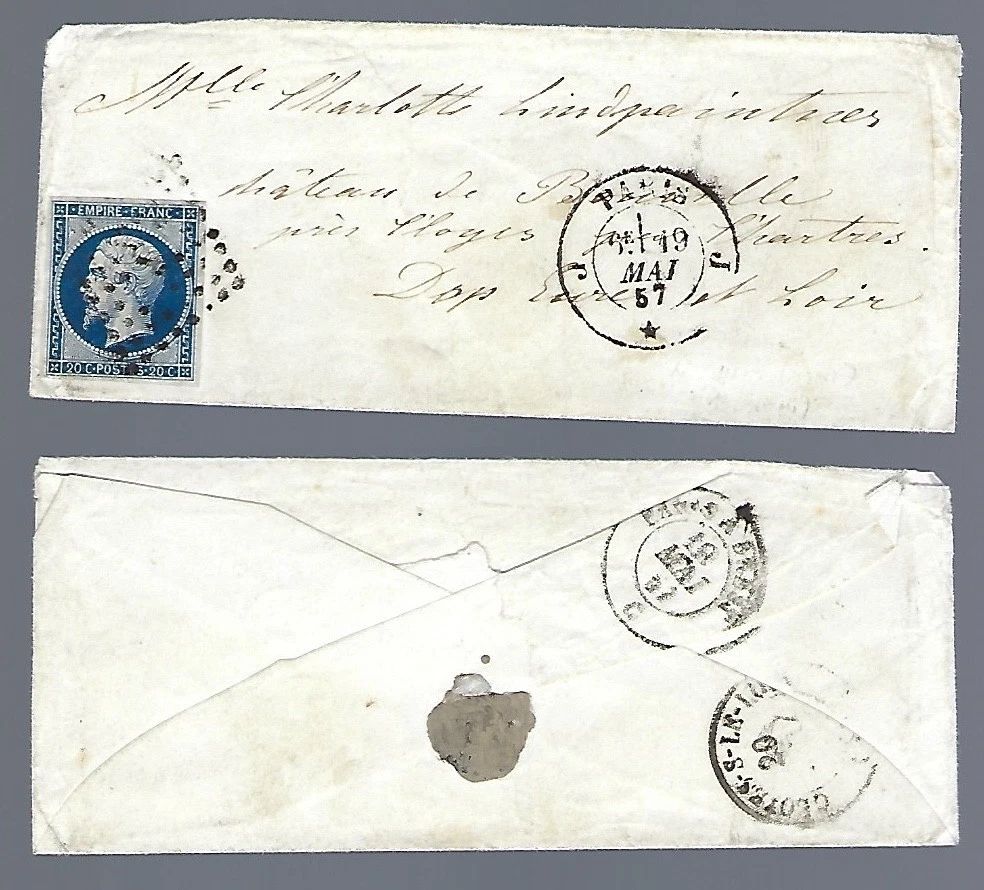 Mlle Charlotte Lindpaintner
château de
près Cloyes Chartres.
Dep Eure et Loir
EMPIRE FRANC
20 C. POSTES 20 C.
PARIS
19
MAI
57
J J
PARIS A
19
MAI
57
CLOYES-S-LE-LOIR
20